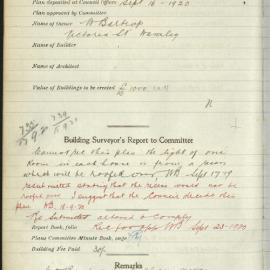 Plan deposited at Council Offices Sept 16 - 1920
Plan approved by Committee
Name of Owner W Bertrop
Victoria St Waverley
Name of Builder
Name of Architect
Value of Buildings to be erected £1000
Building Surveyor's Report to Committee
Cannot pass this plan the light of one
Room in each house is from a recess
which will be roofed over WB Sept 17/9
resubmitted stating that the recess would not be
roofed over I suggest that the Council decide this
plan WB 18-9-20
Re Submitted altered to Comply
Report Book, folio Rec for app WB Sept 23-1920
Plans Committee Minute Book, page
Building Fee Paid 30/-
Remarks